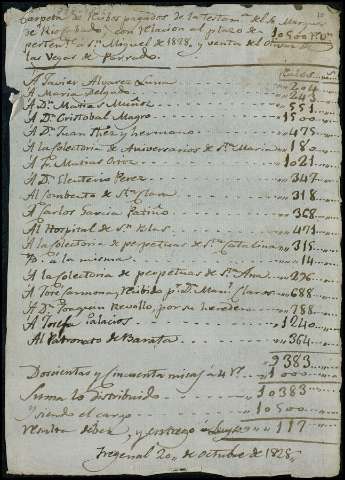 Carpeta de Recibos pagados de la Testam.ª del S. Marques
de Rio , con relacion al plazo de
pertenec.te á S.n Miguel de 1828, y venta del
las Vegas de 10500 R.s V.n
A Javier Alvarez Luna 204
A Maria Delgado 243
A D.n Matias Muñoz 551
A D.n Cristobal Magro 1500
A D.n Juan y hermano 475
A la Colectoria de Aniversarios de S.ta Maria 180
A Fr. Matias 1021
A D.n Eleuterio Perez 347
Al Combento de S.ta Clara 318
A Carlos Garcia Patiño 368
Al Hospital de S.n Blas 471
A la Colectoria de perpetuas de S.ta Catalina 315
Yd. á la misma 14
A la Colectoria de perpetuas de S.ta Ana 296
A Jose Carmona, Recibido p.r D. Man.l Claros 688
A D.n Joaquin Rebollo, por su heredera 788
A Josefa Palacios 1240
Al Patronato de Barata 364
9383
Doscientas y Cincuenta misas á 4 r.s 1000
Suma lo distribuido 10383
Y siendo el cargo 10500
resulta deber y entrego 117
Fregenal 20 de Octubre de 1828